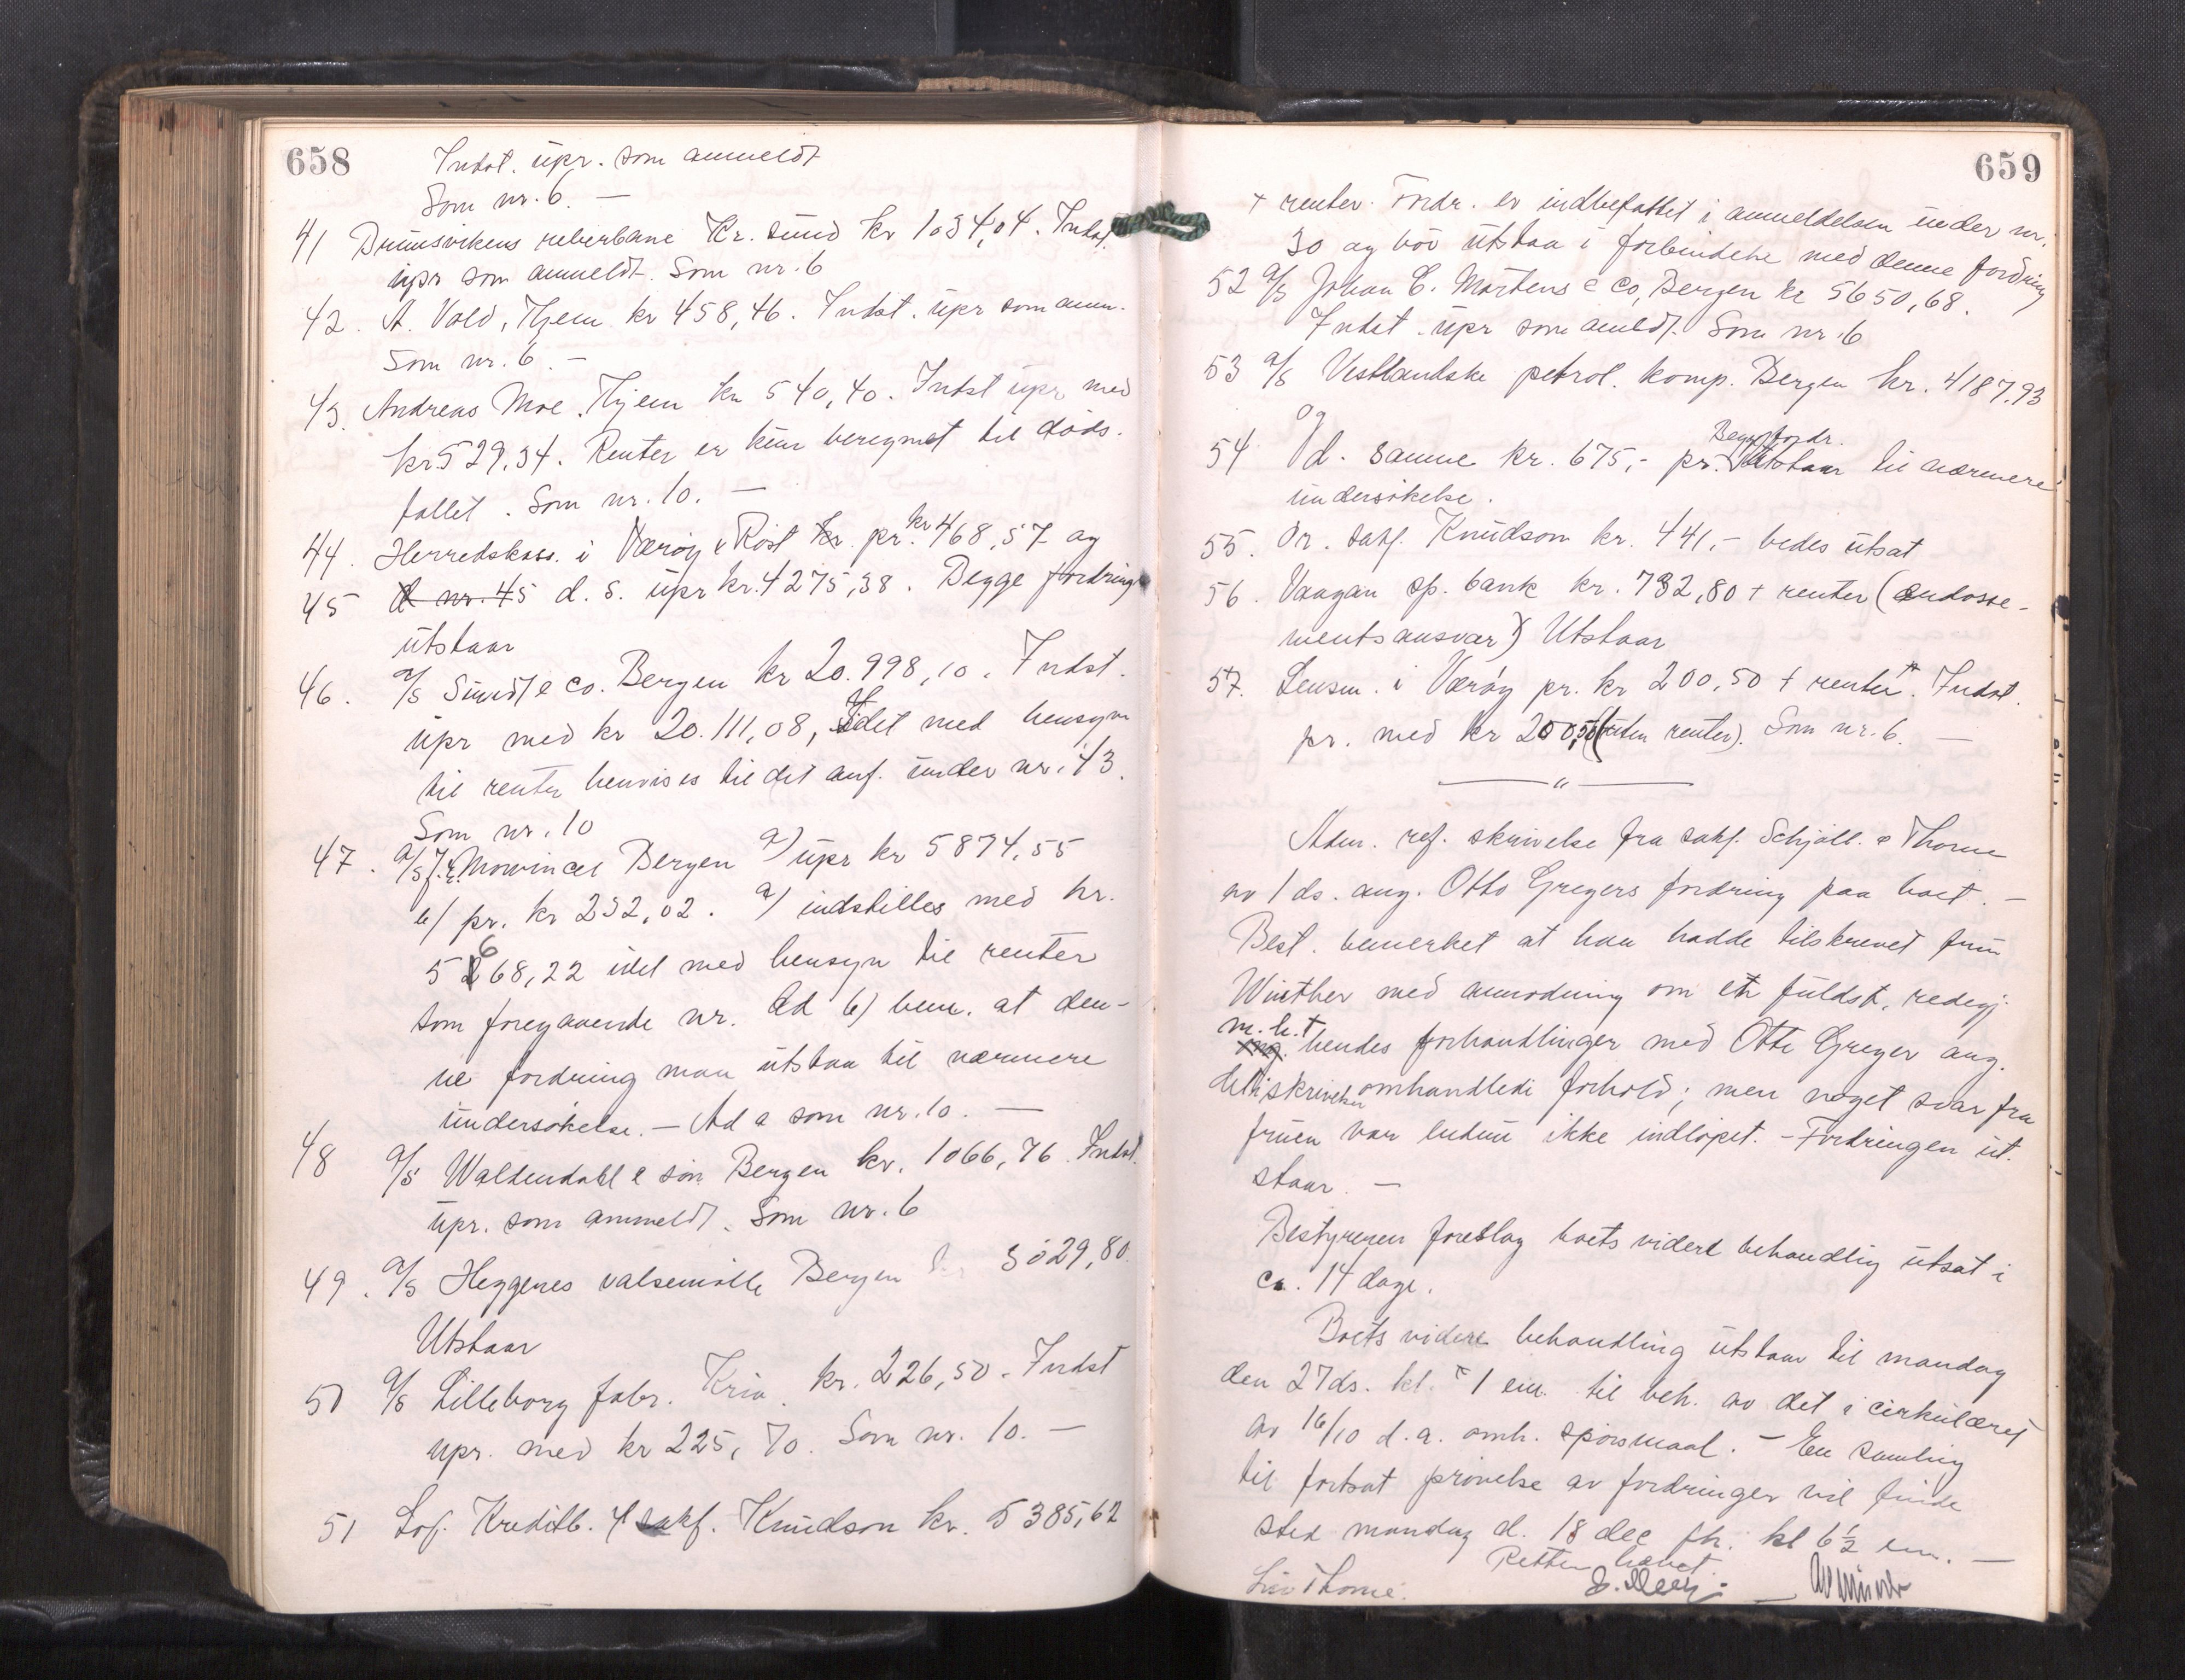 658
Indst. upr. som anmeldt
Som nr. 6. —
41 Drumsvikens reberbane Kr. sund kr 1034,04. Indst.
upr som anmeldt. Som nr. 6
42. A. Vold, Hjem kr 458,46. Indst. upr som anm.
Som nr. 6. —
43. Andreas Moe, Hjem kr 540,40. Indst upr med
kr 529,34. Renter er kun beregnet til døds-
fallet. Som nr. 10. —
44. Herredskass. i Værøy & Røst pr. kr 468,57 og
45 d. s. upr kr. 4275,38. Begge fordringer
utstaar
46. A/S Sundt & Co. Bergen kr 20.998,10. Indst.
upr med kr 20.111,08, Idet med hensyn
til renter henvises til det anf. under nr. 43.
Som nr. 10
47. A/S J. E. Mowinckel Bergen a) upr kr 5874,55
b) pr. kr 232,02. a) indstilles med kr.
5668,22 idet med hensyn til renter
som foregaaende nr. Ad b) bem. at den-
ne fordring maa utstaa til nærmere
undersøkelse. — Ad a som nr. 10. —
48 A/S Waldendahl & søn Bergen kr. 1066,76. Indst.
upr. som anmeldt. Som nr. 6
49. A/S Heggenes valsemølle Bergen kr 3029,80.
Utstaar
50 A/S Lilleborg fabr. Kria. kr. 226,50. Indst
upr. med kr 225,70. Som nr. 10. —
51 Lof. Kreditb. v/ sakf. Knudson kr. 5385,62
659
+ renter. Fordr. er indbefattet i anmeldelsen under nr.
30 og bør utstaa i forbindelse med denne fordring
52 A/S Johan C. Martens & Co, Bergen kr 5650,68.
Indst. upr som anmldt. Som nr. 6
53 A/S Vestlandske petrol. komp. Bergen kr. 4187,93
og
54 d. samme kr. 675,- pr. Begge fordr. Utstaar til nærmere
undersøkelse.
55. Or. sakf. Knudson kr. 441,- bedes utsat
56. Vaagan sp. bank kr. 732,80 + renter (endosse-
mentsansvar) Utstaar
57. Lensm. i Værøy pr. kr 200,50 + renter. Indst.
pr. med kr 200,50 (uten renter). Som nr. 6. —
— " —
Adm. ref. skrivelse fra sakf. Schjøll. & Thorne
av 1 ds. ang. Otto Gregers fordring paa boet. —
Best. bemerket at han hadde tilskrevet fru
Winther med anmodning om en fuldst. redegj.
m. h. t. hendes forhandlinger med Otto Greger ang.
det i skrivelsen omhandlede forhold; men noget svar fra
fruen var endnu ikke indløpet. - Fordringen ut-
staar. —
Bestyreren foreslog boets videre behandlig utsat i
ca. 14 dage.
Boets videre behandling utstaar til mandag
den 27 ds. kl. 1 em. til beh. av det i cirkulæret
av 16/10 d. a. omh. spørsmaal. — En samling
til fortsat prøvelse av fordringer vil finde
sted mandag d. 18 dec. kl 6½ em. —
Retten hævet.
Thorne.